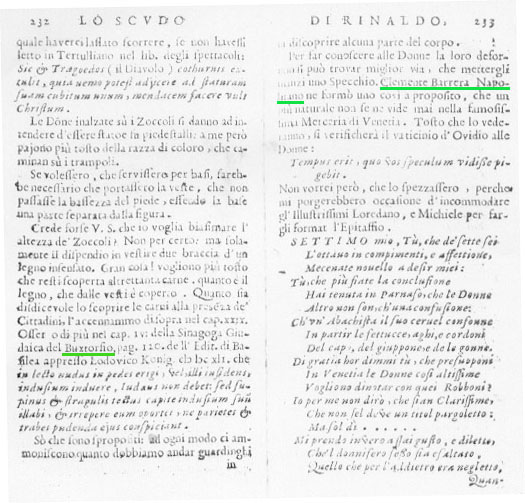 232 LO SCVDO
quale haverei lassato scorrere, se non havessi
letto in Tertulliano nel lib. degli spettacoli:
Sic & Tragoedos (il Diavolo) cothurnis ex-
tulit, quia nemo potest adjicere ad staturam
suam cubitum unum, mendacem facere vult
Christum.
Le Dõne inalzate sù i Zoccoli si danno ad in-
tendere d'essere statoe in piedestalli: a me però
pajono più tosto della razza di coloro, che ca-
minan sù i trampoli.
Se volessero, che servissero per basi, fareb-
be necessario che portassero la veste, che non
passasse la bassezza del piede, essendo la base
una parte separata dalla figura.
Crede forse V. S. che io voglia biasimare l'
altezza de' Zoccoli? Non per certo: ma sola-
mente il dispendio in vestire due braccia d'un
legno insensato. Gran cosa! vogliono più tosto
che resti scoperta altrettanta carne, quanto è il
legno, che dalle vesti è coperto. Quanto sia
disdicevole lo scoprire le carni alla presēza de'
Cittadini, l'accennammo disopra nel cap. XXIX.
Osser. o di più nel cap. IVI della Sinagoga Giu-
daica del Buxtorfio, pag. 120. dell' Edit. di Ba-
silea appresso Lodovico Konig.
in lecto nudus in pedes erigi, vel alii insidens,
indusium induere, Iudæus non debet: sed su-
pinus & stragulis tectus capite indusium suũ
illabi, & irrepere eum oportet, ne parietes &
trabes pudenda ejus conspiciant.
Sò che sono spropoti: ad ogni modo ci am-
moniscono quanto dobbiamo andar guardinghi
in
DI RINALDO. 233
in discoprire alcuna parte del corpo.
Per far conoscere alle Donne la loro defor-
si può trovar miglior via, che mettergli
inanzi uno Specchio. Clemente Barrera Napo-
litano ne formò uno così a proposito, che un
più naturale non se ne vide mai nella famosis-
sima Merceria di Venetia. Tosto che lo vede-
ranno, si verificherà il vaticinio d'Ovidio alle
Donne:
Tempus erit, quo vos speculum vidisse pi-
gebit.
Non vorrei però, che lo spezzassero, perche
mi porgerebbero occasione d'incommodare
gl' Illustrissimi Loredano, e Michele per far-
gli format l'Epitaffio.
SETTIMO mio, Tù, che de' sette sei
L'ottavo in complimenti, e affettione,
Mecenate novello a desir miei:
Tù, che più fiate la conclusione
Hai tenuta in Parnaso, che le Donne
Altro non son, ch'una confusione:
Ch'un' Abachista il suo cervel confonne
In partir le settucce, aghi, e cordoni
Del capo, del giuppone, e de le gonne.
Di pratia hor dimmi tù, che presupponi
In Venetia le Donne così altissime
Vogliono dinotar con quei Robboni?
Io per me non dirò, che sian Clarissime,
Che non sel deve un titol pargoletto:
Ma sol di . . . . . .
Mi prendo invero assai gusto, e diletto,
Che'l disonesto sesso sia esaltato,
Quello che per l'addietro era negletto,
Quan-